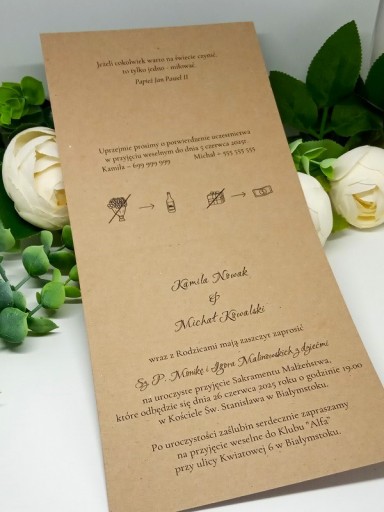 Jeżeli cokolwiek warto na świecie czynić,
to tylko jedno - miłować.
Papież Jan Paweł II
Uprzejmie prosimy o potwierdzenie uczestnictwa
w przyjęciu weselnym do dnia 5 czerwca 2025r
Kamila – 699 999 999 Michał – 555 555 555
Kamila Nowak
&
Michał Kowalski
wraz z Rodzicami mają zaszczyt zaprosić
Sz. P. Monikę i Igora Malinowskich z dziećmi
na uroczyste przyjęcie Sakramentu Małżeństwa,
które odbędzie się dnia 26 czerwca 2025 roku o godzinie 19.00
w Kościele Św. Stanisława w Białymstoku.
Po uroczystości zaślubin serdecznie zapraszamy
na przyjęcie weselne do Klubu "Alfa"
przy ulicy Kwiatowej 6 w Białymstoku.